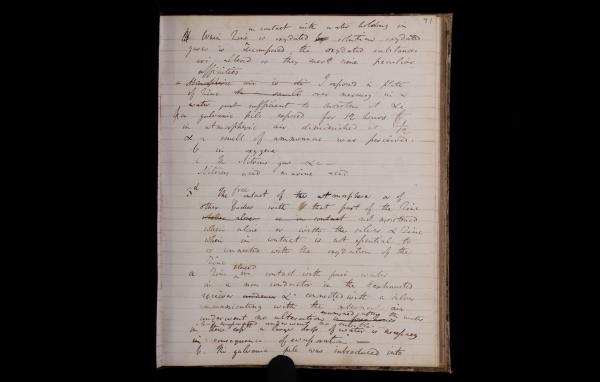 91
in contact with water holding in
When Zinc is oxydated by solution oxydated
gases is decomposed, the oxydated substances
are altered or they must have peculiar
affinities
a I exposed a plate
of Zinc over mercury in a
water just sufficient to moisten it &c
a galvanic pile exposed for 12 hours to
in atmospheric air diminished it 1/12
& a smell of ammoniac was perceived.
b in oxygen
c. In Nitrous gas &c —
Nitrous acid marine acid
3d The free contact of the atmosphere or of
other bodies with that part of the Zinc
not moistened
when alone or with the silver & Zinc
when in contact is not essential to
or connected with the oxydation of the
Zinc
a Zinc placed in contact with pure water
in a non conductor in the exhausted
receiver &c connected with a silver
communicating with the external air
underwent no alteration
underwent no
a large drop of water is necessary
in consequence of evaporation —
b. The galvanic pile was introduced into